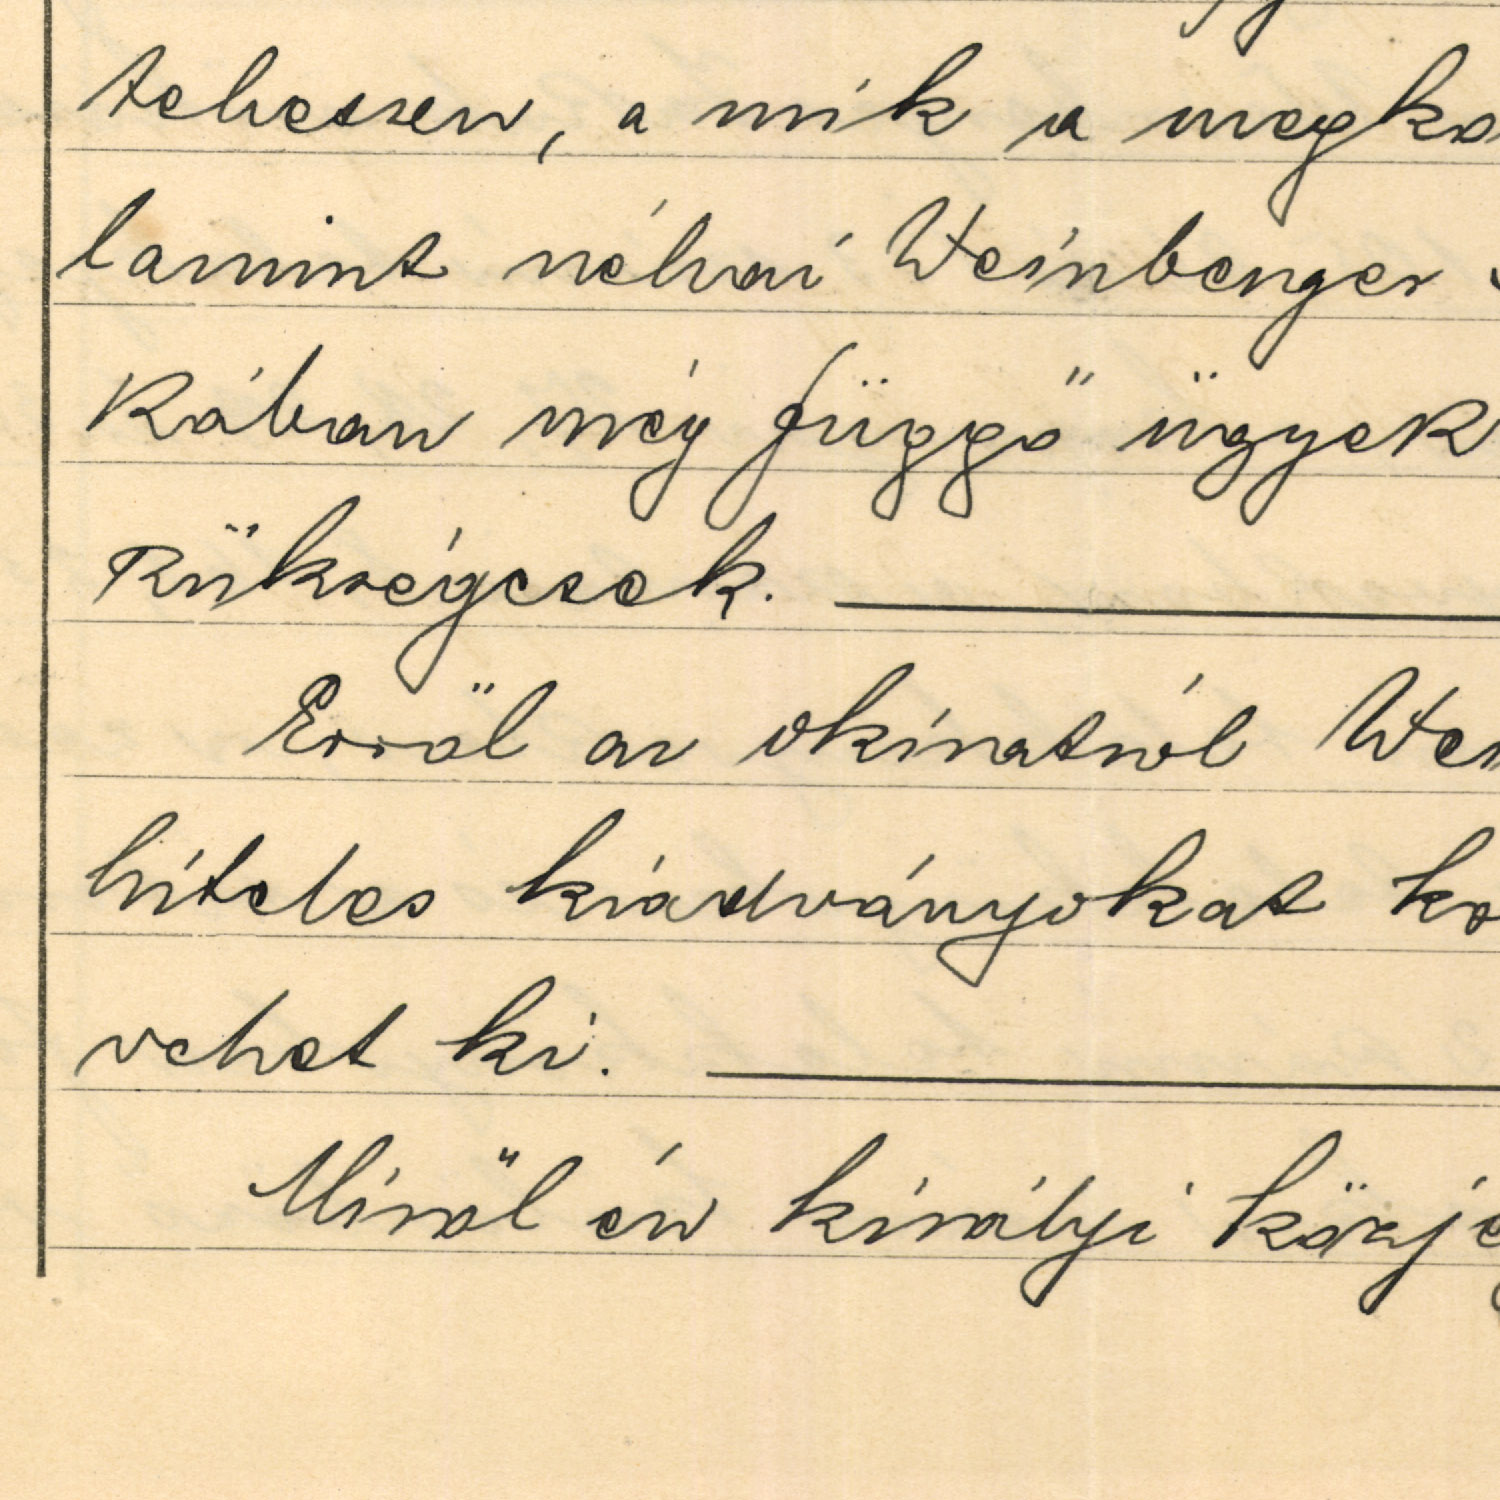 tehessen, a mik a megko
lamint néhai Weinberger
kában még függő ügyek
szükségesek.
Erről az okiratról Wei
hiteles kiadványokat ko
vehet ki.
Miről én királyi közje